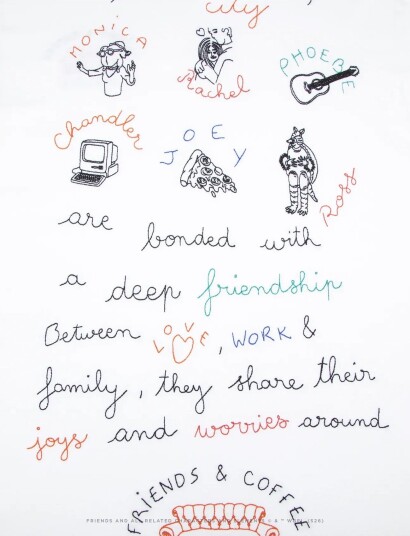 city
MONICA
Rachel
PHOEBE
Chandler
JOEY
Ross
are
bonded with
a deep friendship
Between LOVE, WORK &
family, they share their
joys and worries around
FRIENDS & COFFEE